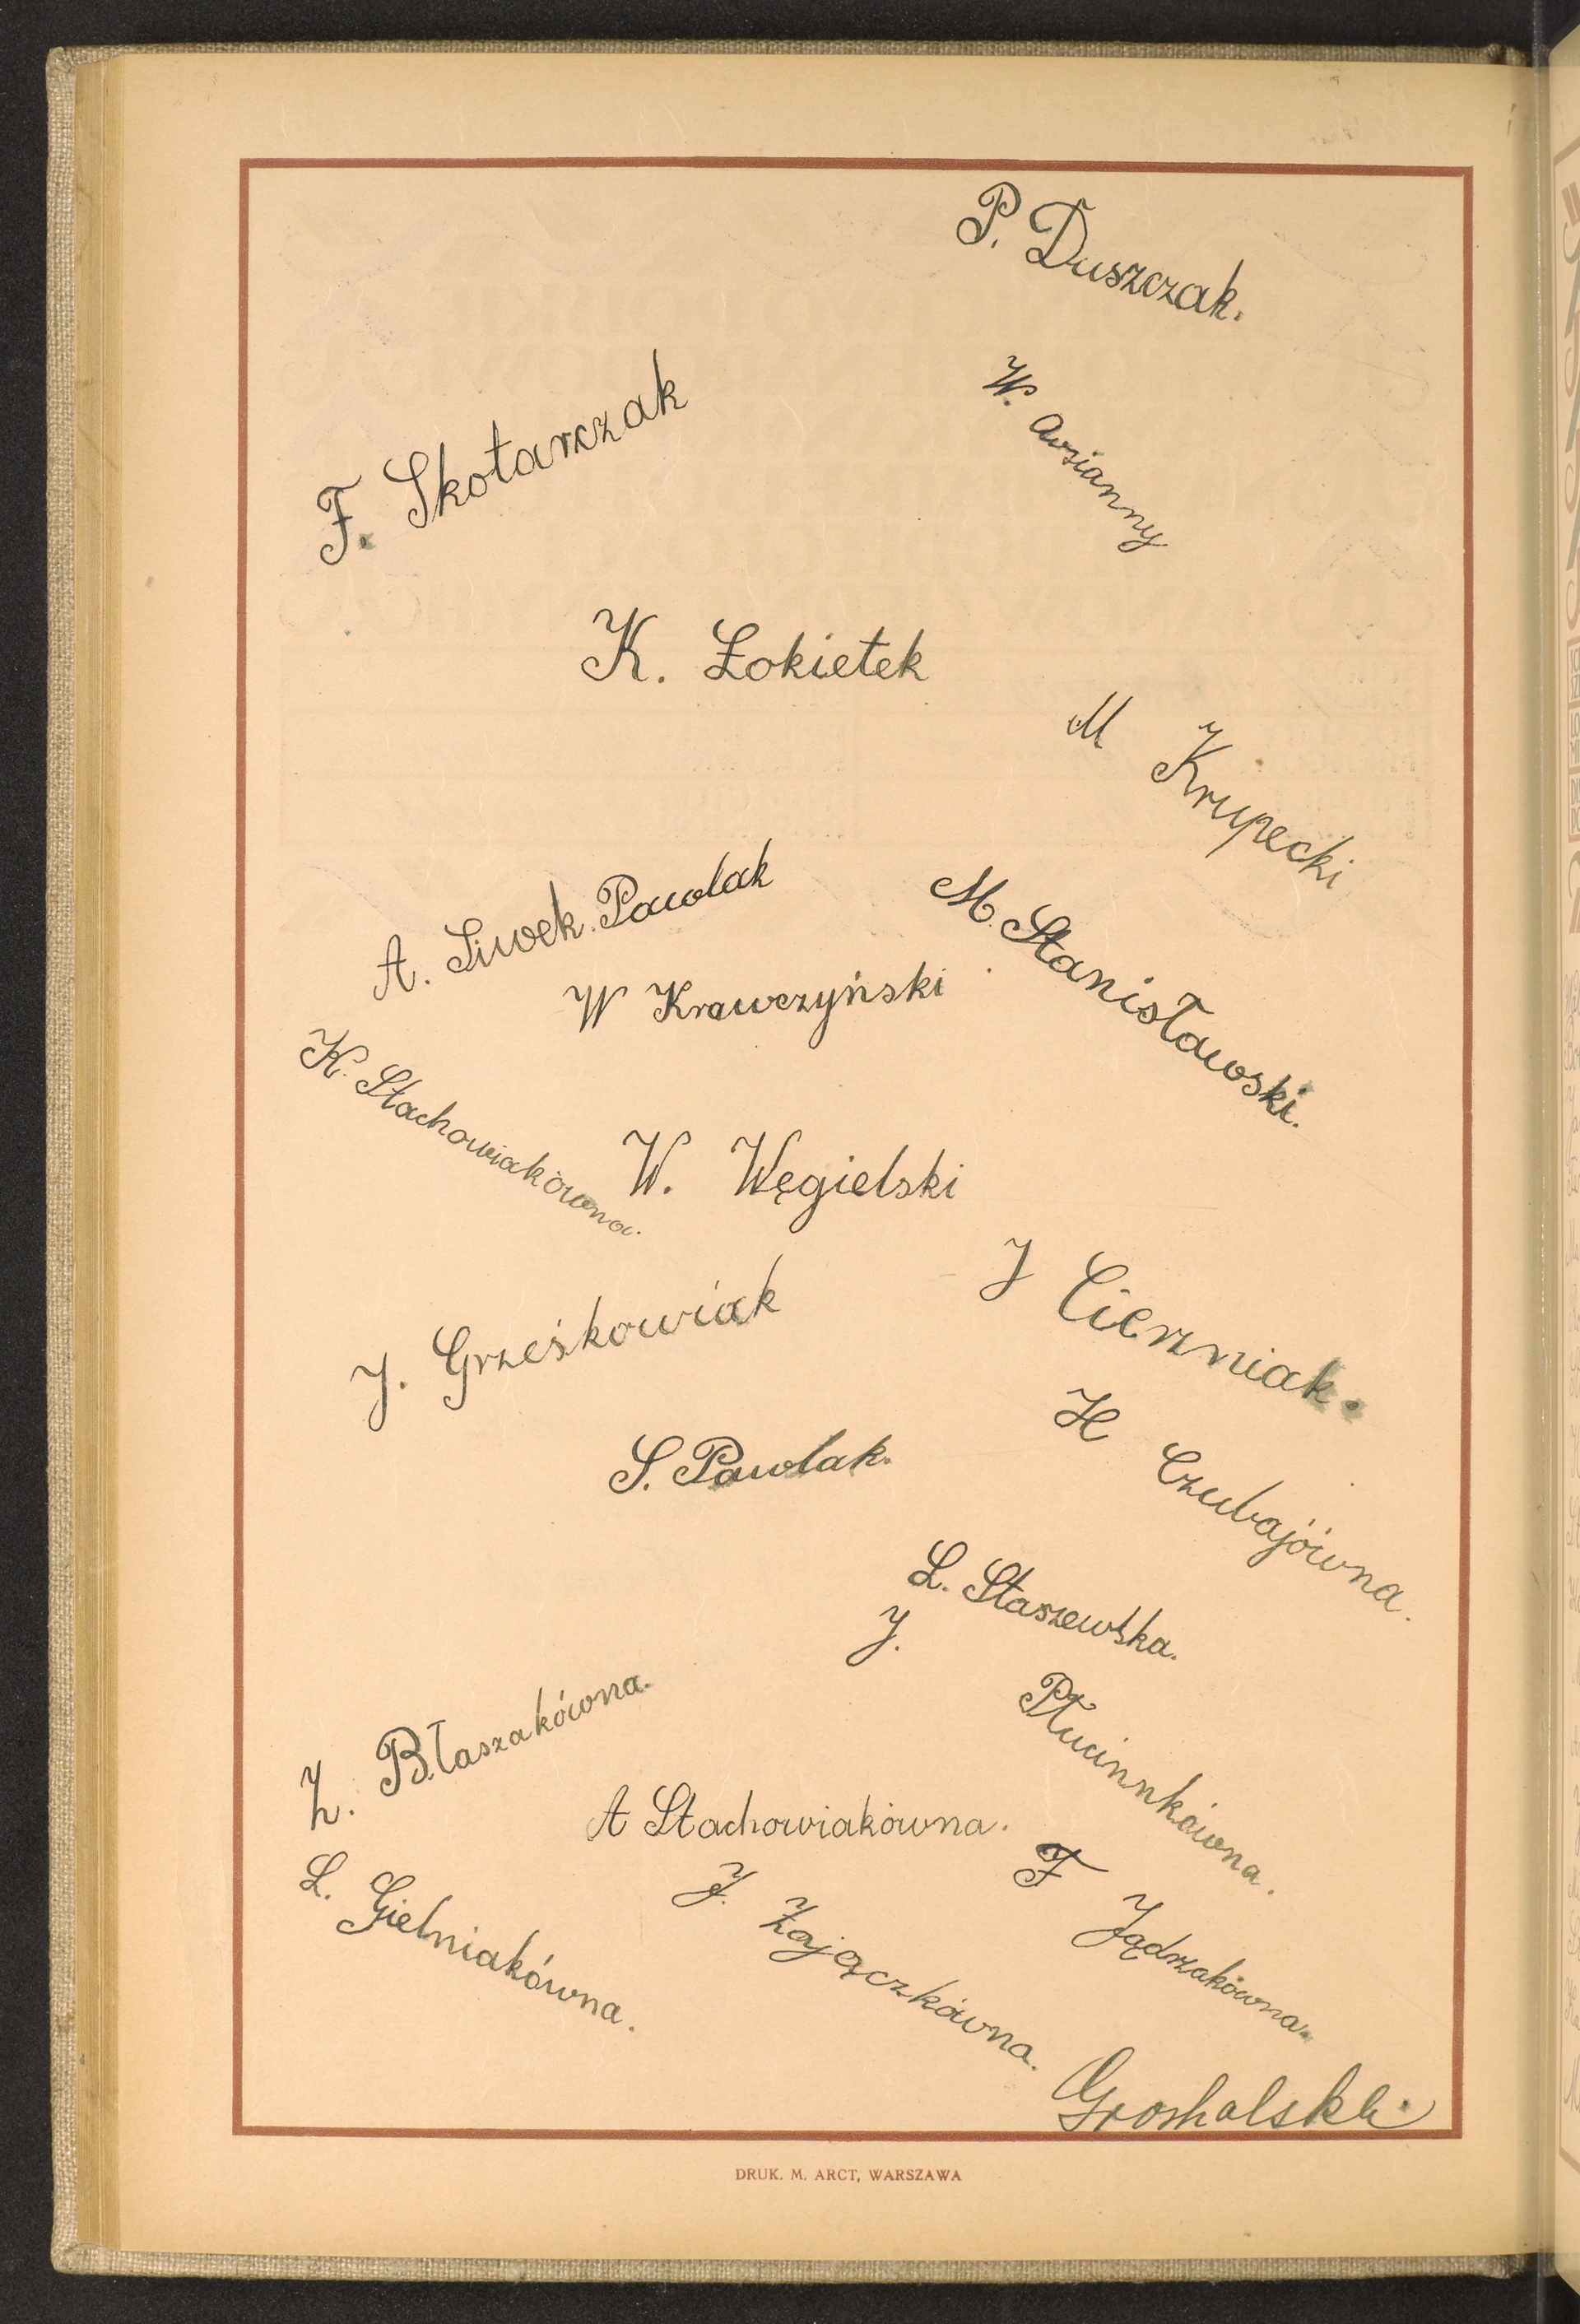 P. Duszczak.
F. Skotarczak
W. Owsianny
K. Łokietek
M Krupecki
A. Siwek. Pawlak
M. Stanisławski.
W Krawczyński
K. Stachowiakówna.
W. Węgielski
J Cierzniak.
J. Grześkowiak
H Czubajówna.
S. Pawlak.
L. Staszewska.
J. Płucinnkówna.
Z. Błaszakówna.
A Stachowiakówna.
F Jądrzakówna.
L. Gielniakówna.
J. Zajączkówna.
DRUK. M. ARCT, WARSZAWA